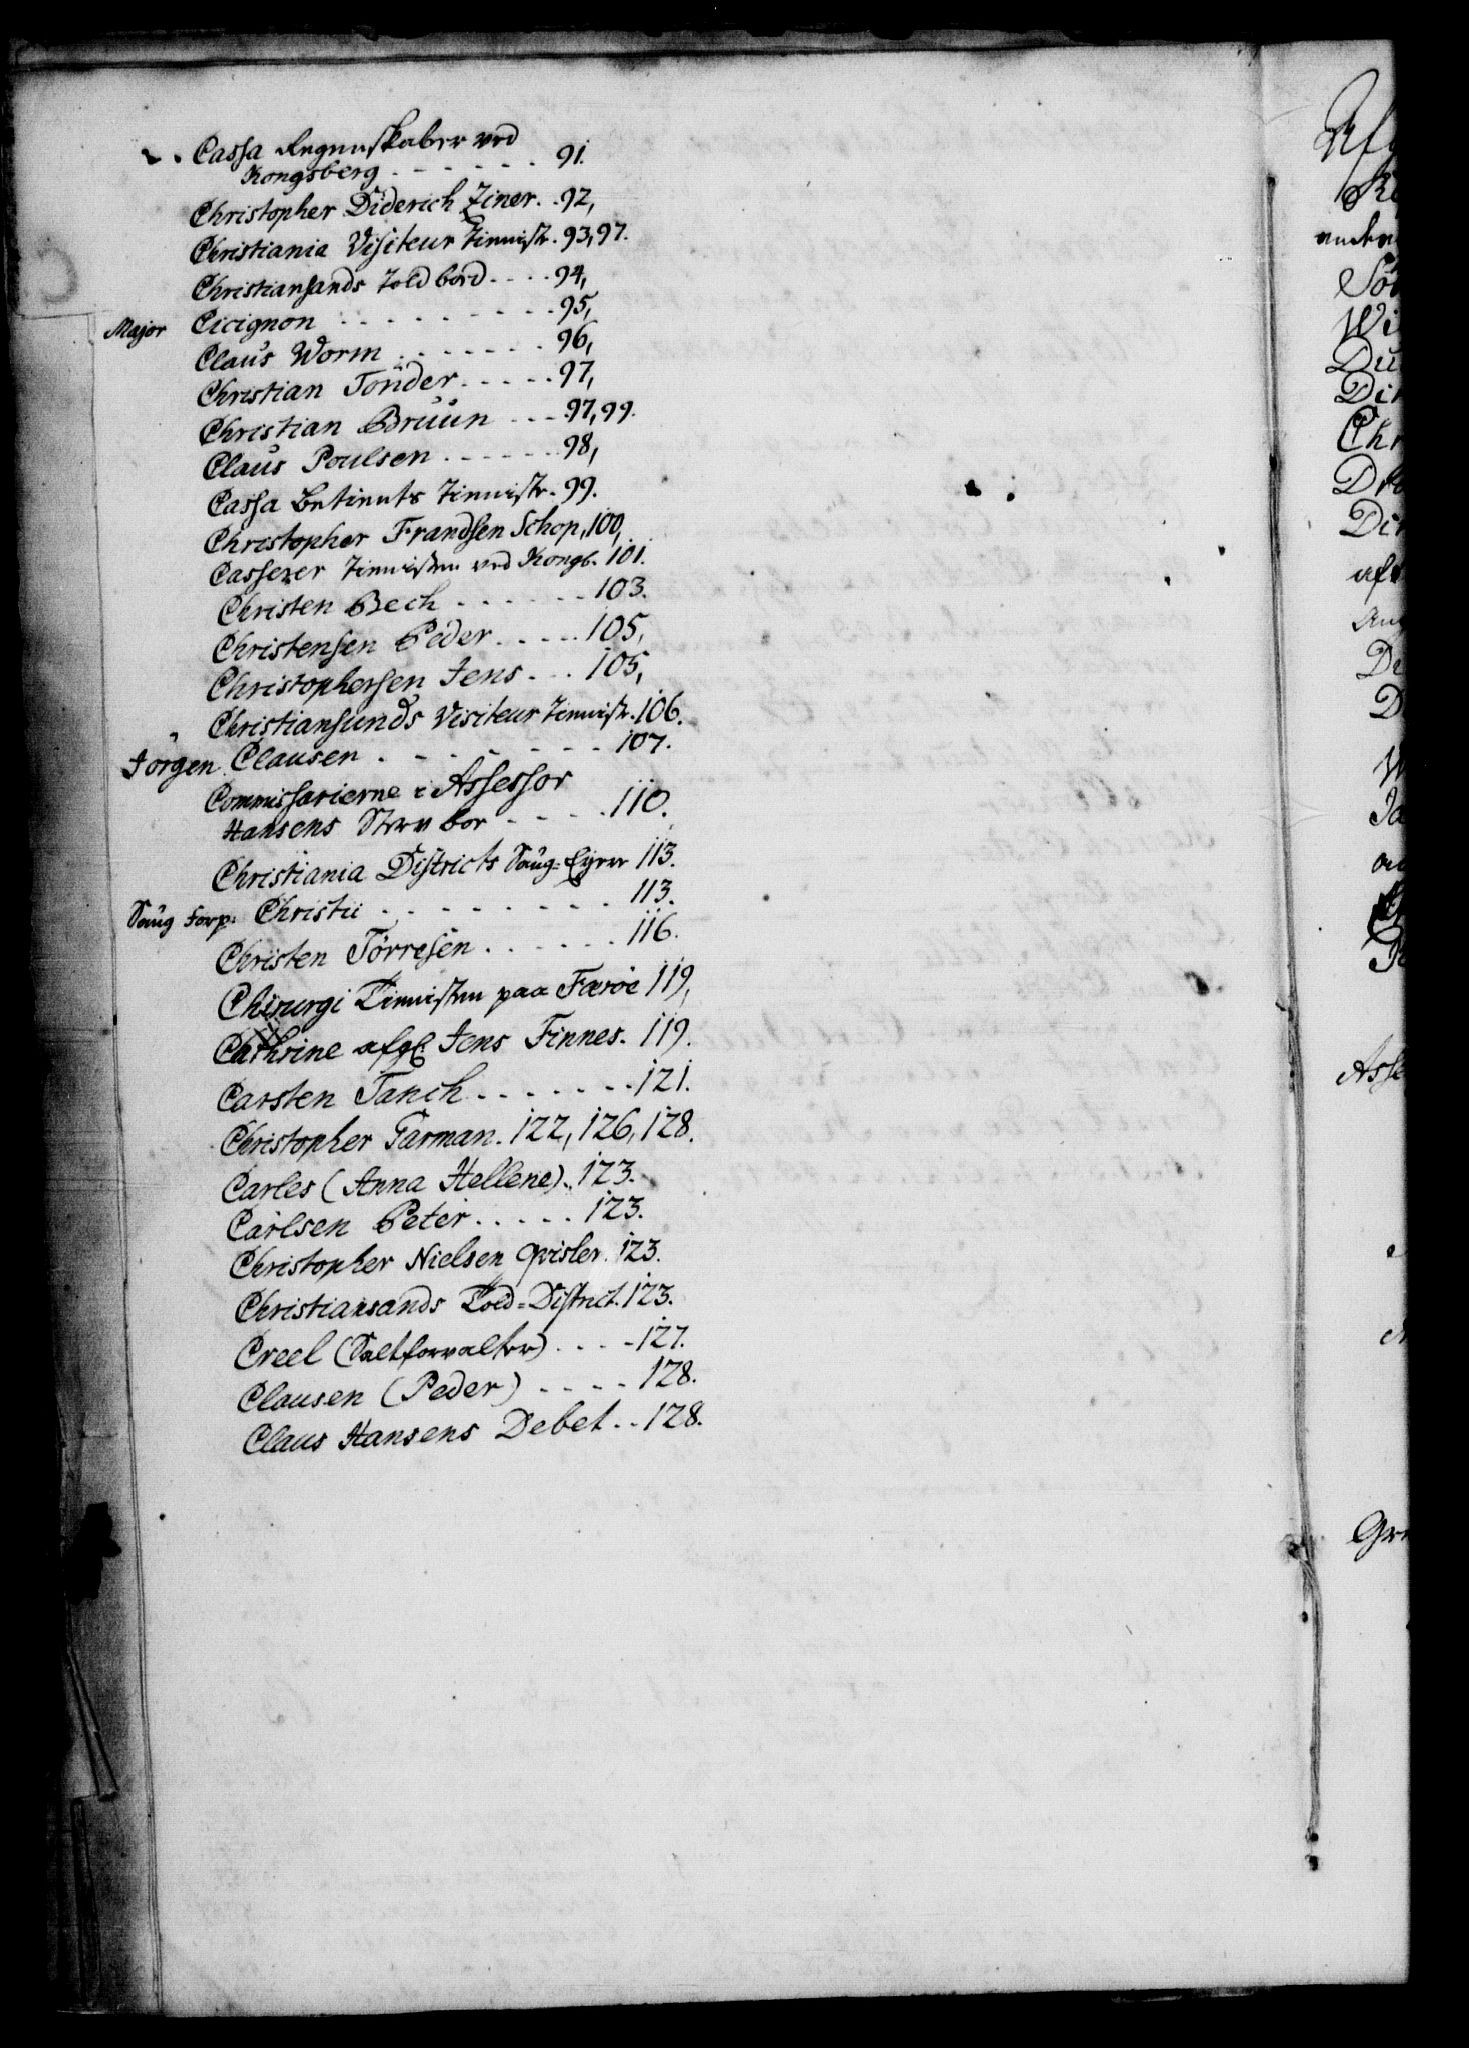 Cassa Regnskaber ved
Kongsberg - - - - - - 91.
Christopher Diderich Ziner. . 92,
Christiania Visiteur Tienniste. 93, 97.
Christiansands Told bord - - - - 94,
Major Cicignon - - - - - - - - 95,
Claus Worm - - - - - - - 96,
Christian Tönder - - - - - 97,
Christian Bruun - - - 97, 99.
Claus Poulsen - - - - - - - 98,
Cassa Betients Tienniste. 99.
Christopher Frandsen Schop, 100,
Casserer Tiennisten ved Kongb. 101.
Christen Bech - - - - - - 103.
Christensen Peder - - - - - 105,
Christophersen Jens - - - 105,
Christiansunds Visiteur Tienniste. 106.
Jörgen Clausen - - - - - - - - 107.
Commissarierne i Assessor
Hansens Sterv boe - - - - - 110.
Christiania Districts Saug-Eyere 113.
Saug Forp: Christii - - - - - - - - 113.
Christen Törresen - - - - - - 116.
Chirurgi Tiennisten paa Færöe 119,
Cathrine afgl. Jens Finnes. 119.
Carsten Tanch - - - - - - - 121.
Christopher Garman. 122, 126, 128.
Carles (Anna Hellene). 123.
Carlsen Peter - - - - - 123.
Christopher Nielsen Qvisler. 123.
Christiansands Told-District. 123.
Creel (Saltforvalter) - - - - 127.
Clausen (Peder) - - - - 128.
Claus Hansens Debet - - 128.